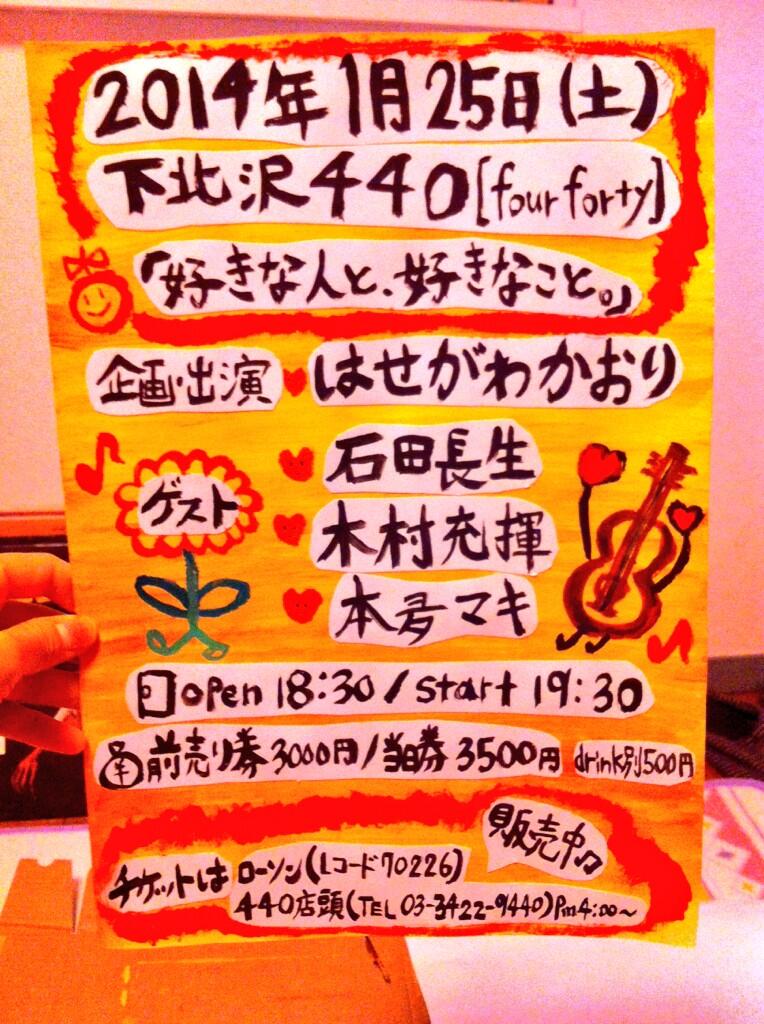 2014年1月25日(土)
下北沢440[four forty]
「好きな人と、好きなこと。」
企画・出演 はせがわかおり
ゲスト
石田長生
木村充揮
本夛マキ
open 18:30/start 19:30
¥前売り券3000円/当日券3500円 drink別500円
販売中♫
チケットは ローソン(Lコード70226)
440店頭(TEL 03-3422-9440)Pm4:00〜